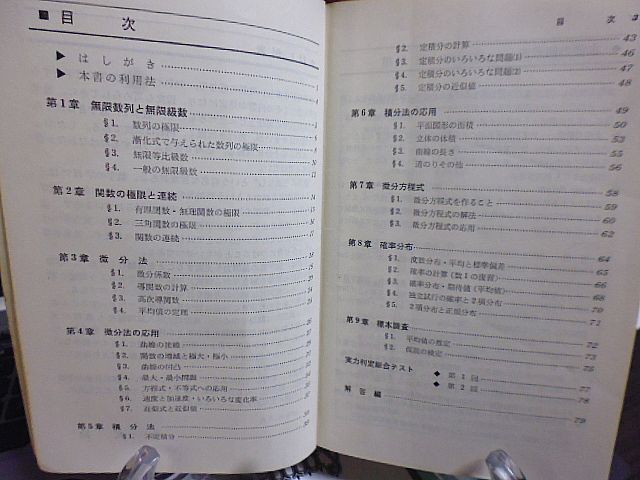 ■目 次
▶ はしがき
▶ 本書の利用法
第1章 無限数列と無限級数
§1. 数列の極限
§2. 漸化式で与えられた数列の極限
§3. 無限等比級数 10
§4. 一般の無限級数
第2章 関数の極限と連続 14
§1. 有理関数・無理関数の極限
§2. 三角関数の極限
§3. 関数の連続 17
第3章 微分法
§1. 微分係数
§2. 導関数の計算
§3. 高次導関数
§4. 平均値の定理
第4章 微分法の応用
§1. 曲線の接線
§2. 関数の増減と極大・極小
§3. 曲線の凹凸
§4. 最大・最小問題
§5. 方程式・不等式への応用
§6. 速度と加速度・いろいろな変化率
§7. 近似式と近似値
第5章 積分法
§1. 不定積分
目 次 3
§2. 定積分の計算 43
§3. 定積分のいろいろな問題(1) 46
§4. 定積分のいろいろな問題(2) 47
§5. 定積分の近似値 48
第6章 積分法の応用 49
§1. 平面図形の面積 50
§2. 立体の体積 53
§3. 曲線の長さ 55
§4. 道のりその他 56
第7章 微分方程式 58
§1. 微分方程式を作ること 59
§2. 微分方程式の解法 60
§3. 微分方程式の応用 62
第8章 確率分布 64
§1. 度数分布・平均と標準偏差 65
§2. 確率の計算(数Iの復習) 66
§3. 確率分布・期待値(平均値) 68
§4. 独立試行の確率と2項分布 70
§5. 2項分布と正規分布 71
第9章 標本調査 72
§1. 平均値の推定 73
§2. 仮説の検定 75
実力判定総合テスト
◆ 第1回 77
◆ 第2回 78
解答編 79